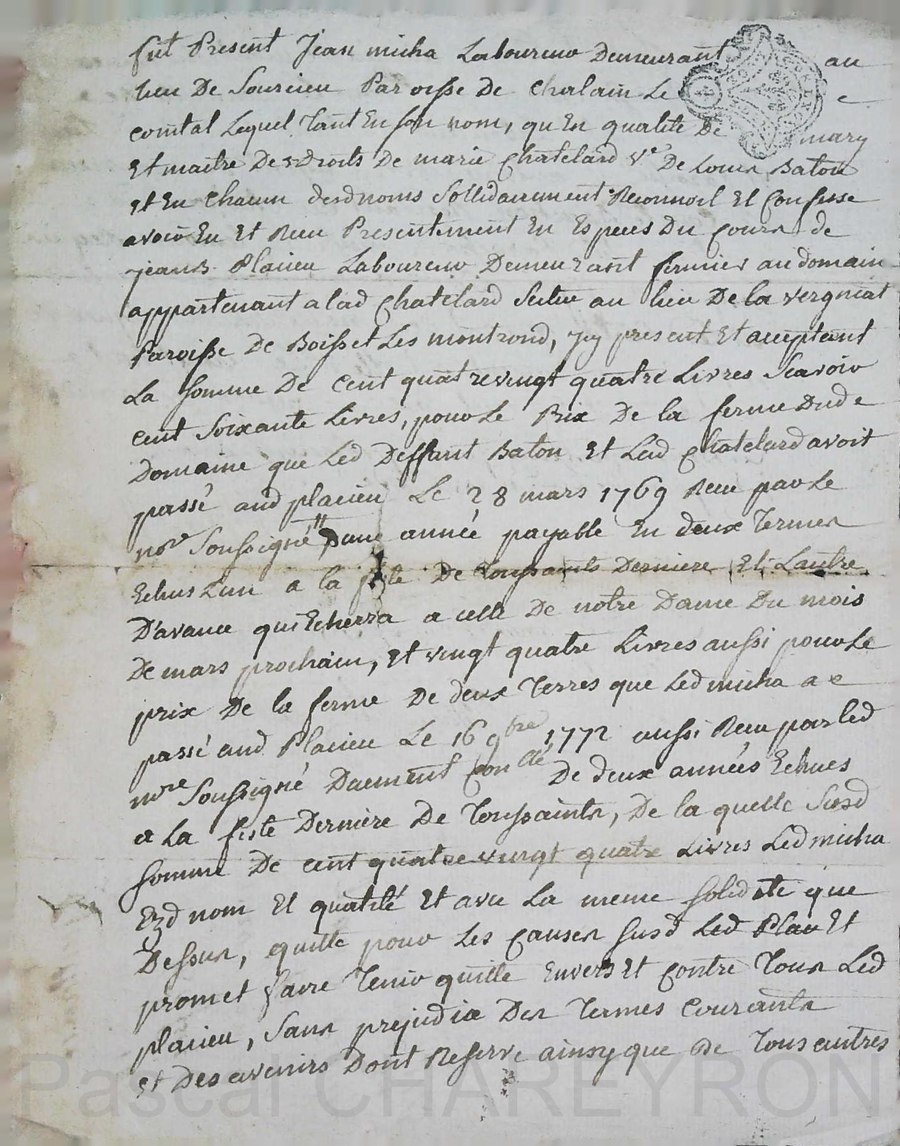 fut Present Jean micha Laboureur Demeurant au
lieu De Sourcieu Paroisse de Chalain Le
comtal Lequel Tant En son nom, qu En qualité De mary
Et maitre Des droits De marie Chatelard Ve De Louis Baton
Et En Chacun desd noms Sollidairement Reconnoit Et Confesse
avoir Eu Et Receu Presentement En Especes Du Cours de
Jean Placieu Laboureur Demeurant fermier au domaine
appartenant a lad Chatelard Scitué au lieu De la vergniat
Paroisse De Boisset Les montrond, icy present Et aceptant
La somme De Cent quatrevingt quatre Livres Scavoir
cent Soixante Livres, pour Le Prix De la ferme Dud
Domaine que Led Deffunt Baton Et Lad Chatelard avoit
passé aud placieu Le 28 mars 1769 Receu par Le
nore Soussigné Dune année payable En deux Termes
Echus Lun a la fete De Toussaints Derniere Et Lautre
D'avance qui Echerra a celle De notre Dame Du mois
De mars prochain, Et vingt quatre Livres aussi pour Le
prix De la ferme De deux Terres que Led micha a
passé aud Placieu Le 16 9bre 1772 aussi Receu par led
nore Soussigné Duement Conllé De deux années Echues
a La feste Derniere De Toussaints, De la quelle Susd
somme De cent quatre vingt quatre Livres Led micha
Ezd nom Et qualité Et avec La meme solidité que
Dessus, quitte pour Les Causes susd Led Placieu Et
promet faire Tenir quitte Envers Et Contre Tous Led
placieu, Sans prejudice Des Termes Courants
et Des avenirs Dont Reserve ainsy que De Tous autres
Pascal CHAREYRON